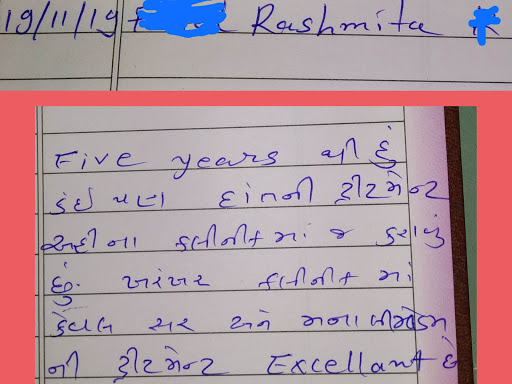 19/11/19 Rashmita
Five years થી હું
કંઈ પણ દાંતની ટ્રીટમેન્ટ
અહીંના કલીનીક માં જ કરાવું
છું. ખરેખર કલીનીક માં
કેવલ સર અને મનાલી મેડમ
ની ટ્રીટમેન્ટ Excellant છે